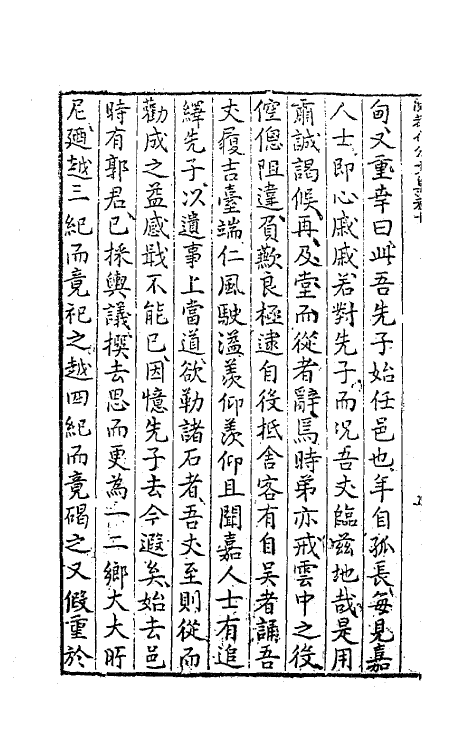 旬又重幸曰此吾先子始任邑也年自孤長每見嘉
人士即心戚戚若對先子而况吾丈臨茲地哉是用
肅誠謁候再及堂而從者辭焉時弟亦戒雲中之役
倥傯阻違負歉良極逮自役抵舍客有自吴者誦吾
丈履吉臺端仁風駛溢羨仰羨仰且聞嘉人士有追
繹先子以遺事上當道欲勒諸石者吾丈至則從而
勸成之益感戢不能已因憶先子去今遐矣始去邑
時有郭君已採輿議撰去思而更為一二鄉大夫盱
尼廼越三紀而竟祀之越四紀而竟碣之又假重於